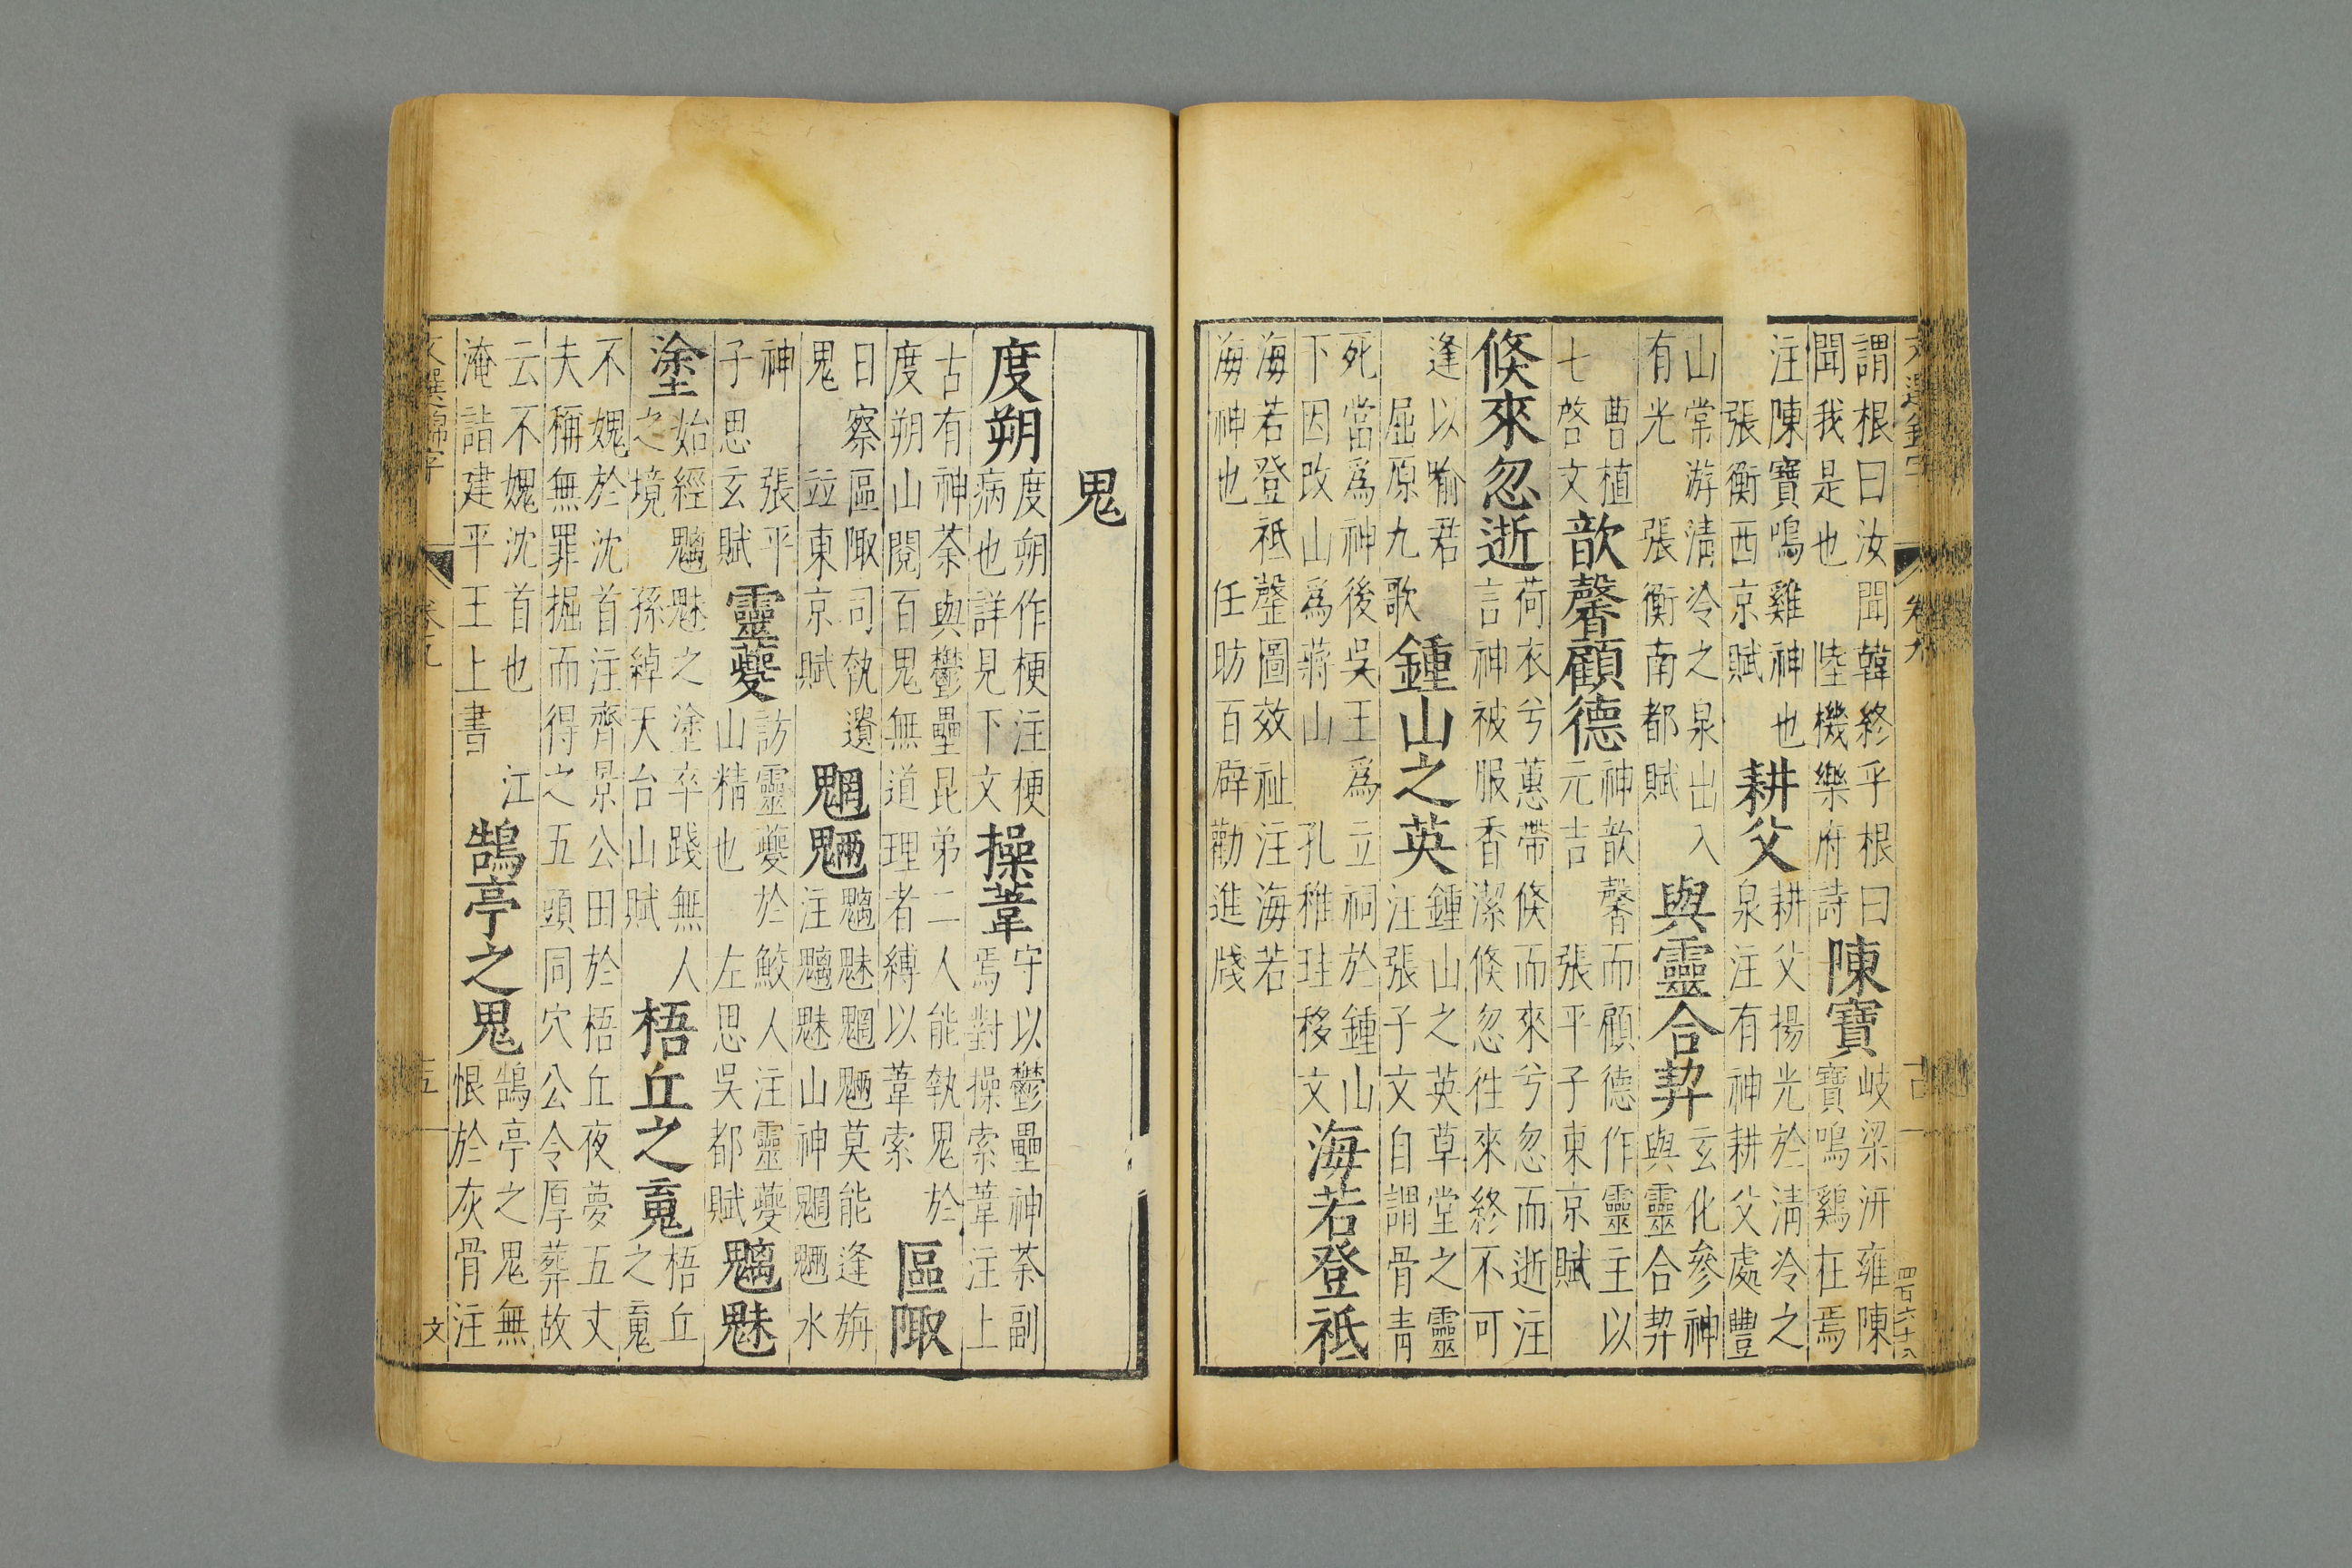 謂根曰汝聞韓終乎根曰
聞我是也 陸機樂府詩
陳寶
岐梁汧雍陳
寶鳴鷄在焉
注陳寶鳴雞神也
張衡西京賦
耕父
耕父揚光於清冷之
泉注有神耕父處豐
山常游清冷之泉出入
有光 張衡南都賦
與靈合契
玄化參神
與靈合契
曹植
七啓文
歆馨顧德
神歆馨而顧德作靈主以
元吉 張平子東京賦
倏來忽逝
荷衣兮蕙帶倏而來兮忽而逝注
言神被服香潔倏忽徃來終不可
逢以喻君
屈原九歌
鍾山之英
鍾山之英草堂之靈
注張子文自謂骨青
死當爲神後吳王爲立祠於鍾山
下因改山爲蔣山 孔稚珪移文
海若登祗
海若登祗罄圖效祉注海若
海神也 任昉百辟勸進牋
卷九
四百六十八
鬼
度朔
度朔作梗注梗
病也詳見下文
操葦
守以鬱壘神荼副
焉對操索葦注上
古有神荼與鬱壘昆弟二人能執鬼於
度朔山閱百鬼無道理者縛以葦索
區陬
日察區陬司執遺
鬼 並東京賦
魍魎
魑魅魍魎莫能逢旃
注魑魅山神魍魎水
神 張平
子思玄賦
靈夔
訪靈夔於鮫人注靈夔
山精也 左思吳都賦
魑魅
塗
始經魑魅之塗卒踐無人
之境 孫綽天台山賦
梧丘之䰟
梧丘
之䰟
不媿於沈首注齊景公田於梧丘夜夢五丈
夫稱無罪掘而得之五頭同穴公令厚葬故
云不媿沈首也 江
淹詣建平王上書
鵠亭之鬼
鵠亭之鬼無
恨於灰骨注
文